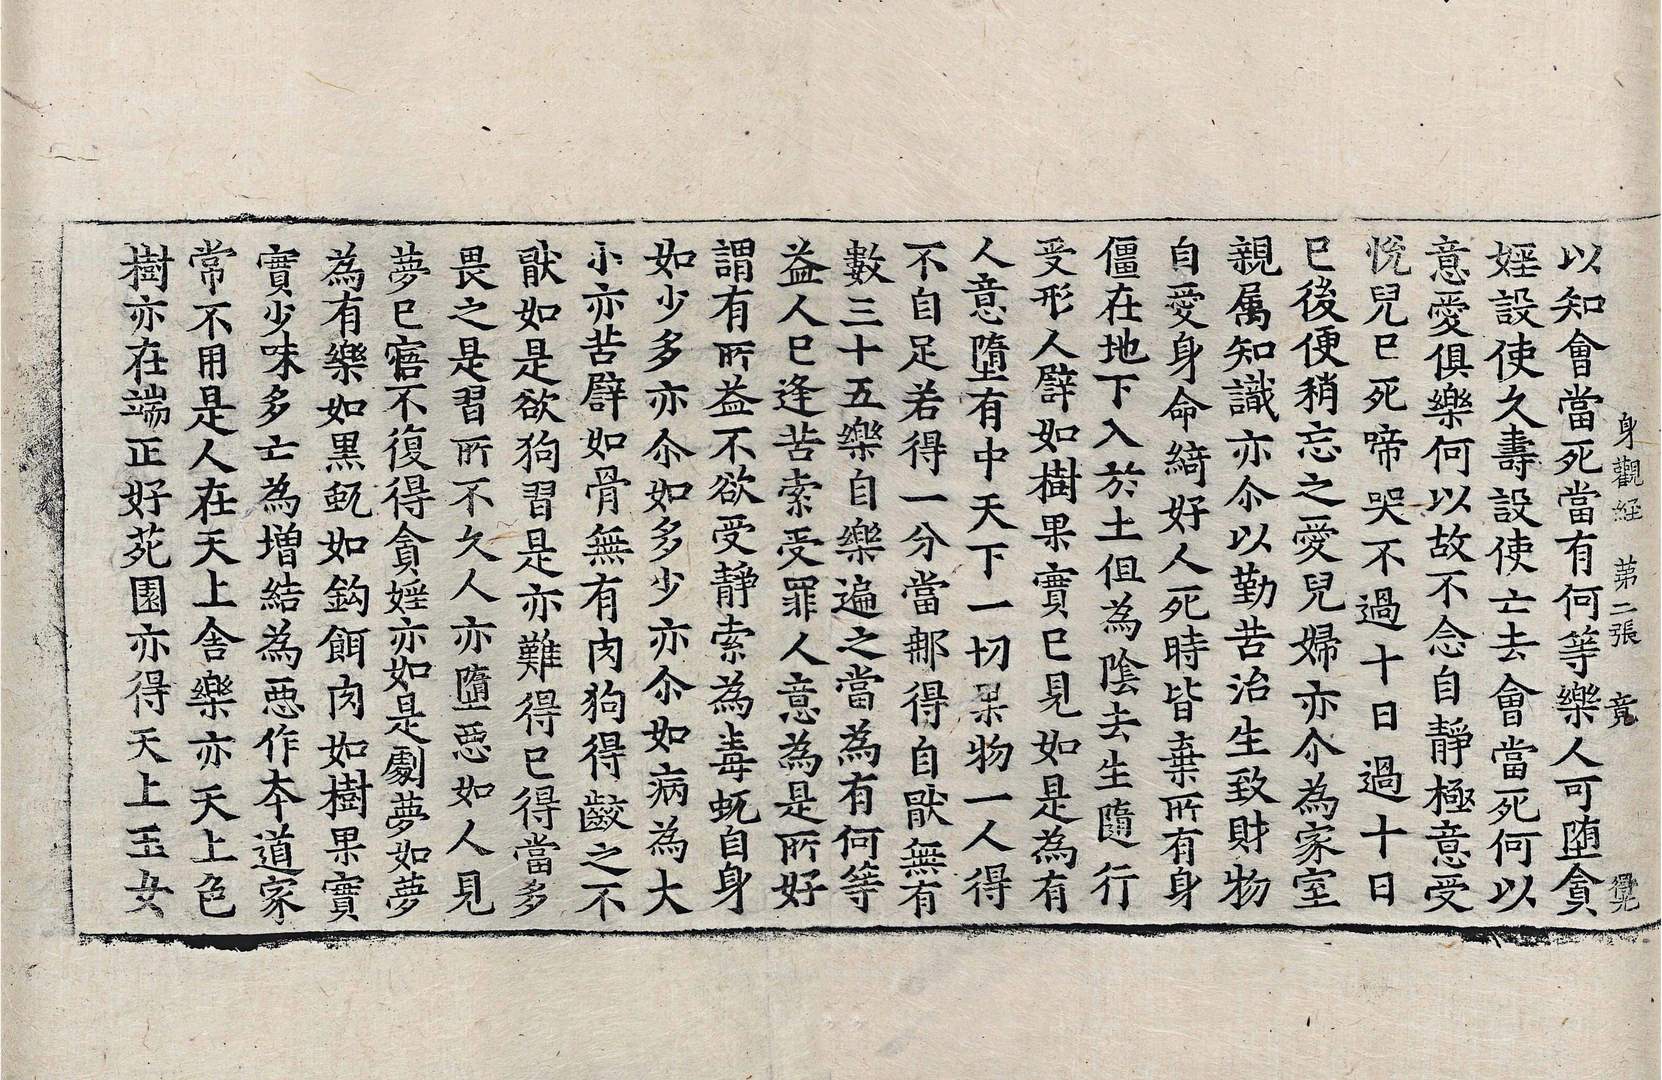 身觀經 第二張 竟
以知會當死當有何等樂人可墮貪
婬設使久壽設使亡去會當死何以
意愛俱樂何以故不念自靜極意受
悅兒已死啼哭不過十日過十日
已後便稍忘之愛兒婦亦尒為家室
親属知識亦尒以勤苦治生致財物
自愛身命綺好人死時皆棄所有身
僵在地下入於土但為陰去生隨行
受形人譬如樹果實已見如是為有
人意墮有中天下一切果物一人得
不自足若得一分當那得自猒無有
數三十五樂自樂遍之當為有何等
益人已逢苦索受罪人意為是所好
謂有所益不欲受靜索為毒蚖自身
如少多亦尒如多少亦尒如病為大
小亦苦譬如骨無有肉狗得齩之不
猒如是欲狗習是亦難得已得當多
畏之是習所不久人亦墮惡如人見
夢已寤不復得貪婬亦如是劇夢如夢
為有樂如黑蚖如鈎餌肉如樹果實
實少味多亡為增結為惡作本道家
常不用是人在天上舍樂亦天上色
樹亦在端正好苑園亦得天上玉女